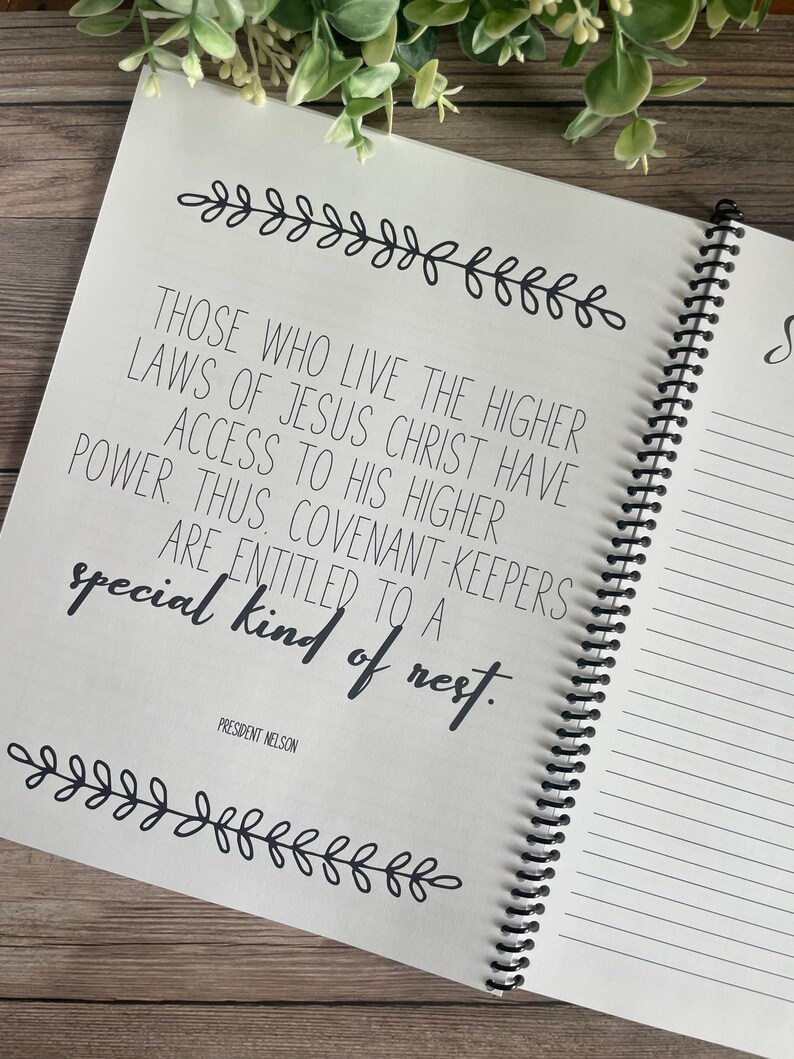 THOSE WHO LIVE THE HIGHER
LAWS OF JESUS CHRIST HAVE
ACCESS TO HIS HIGHER
POWER. THUS, COVENANT-KEEPERS
ARE ENTITLED TO A
special kind of rest.
PRESIDENT NELSON
S